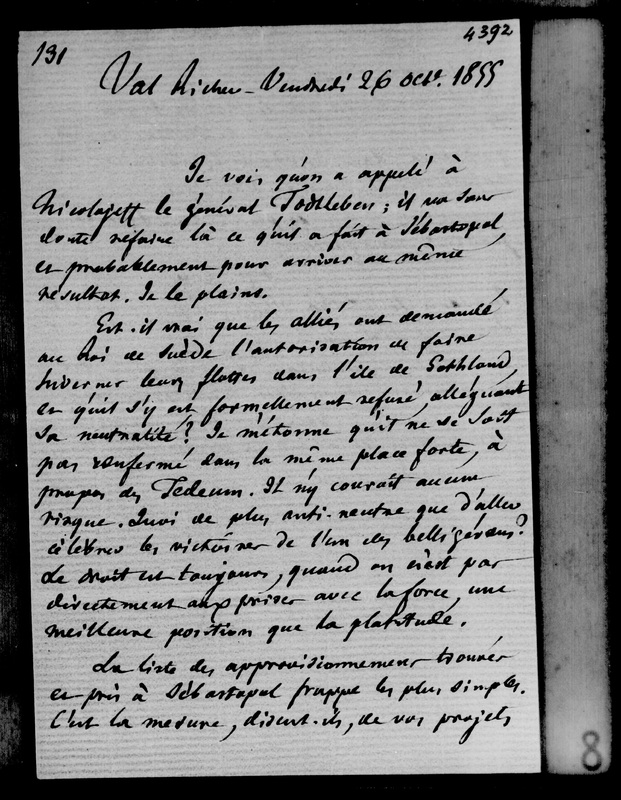 131
4392
Val Richer - Vendredi 26 Octe. 1855
Je vois qu'on a appelé à
Nicolajeff le général Todtleben ; il va sans
doute refaire là ce qu'il a fait à Sébastopol,
et probablement pour arriver au même
résultat. Je le plains.
Est-il vrai que les alliés ont demandé
au Roi de Suède l'autorisation de faire
hiverner leurs flottes dans l'ile de Gothland,
et qu'il s'y est formellement refusé, alléguant
sa neutralité ? Je m'étonne qu'il ne se soit
pas renfermé dans la même place forte, à
propos des Tedeum. Il n'y courait aucun
risque. Quoi de plus anti-neutre que d'aller
célébrer les victoires de l'un des belligérans ?
Le droit est toujours, quand on n'est pas
directement aux prises avec la force, une
meilleure position que la platitude.
La liste des approvisionnemens trouvés
et pris à Sébastopol frappe les plus simples.
C'est la mesure, disent-ils, de vos projets
8